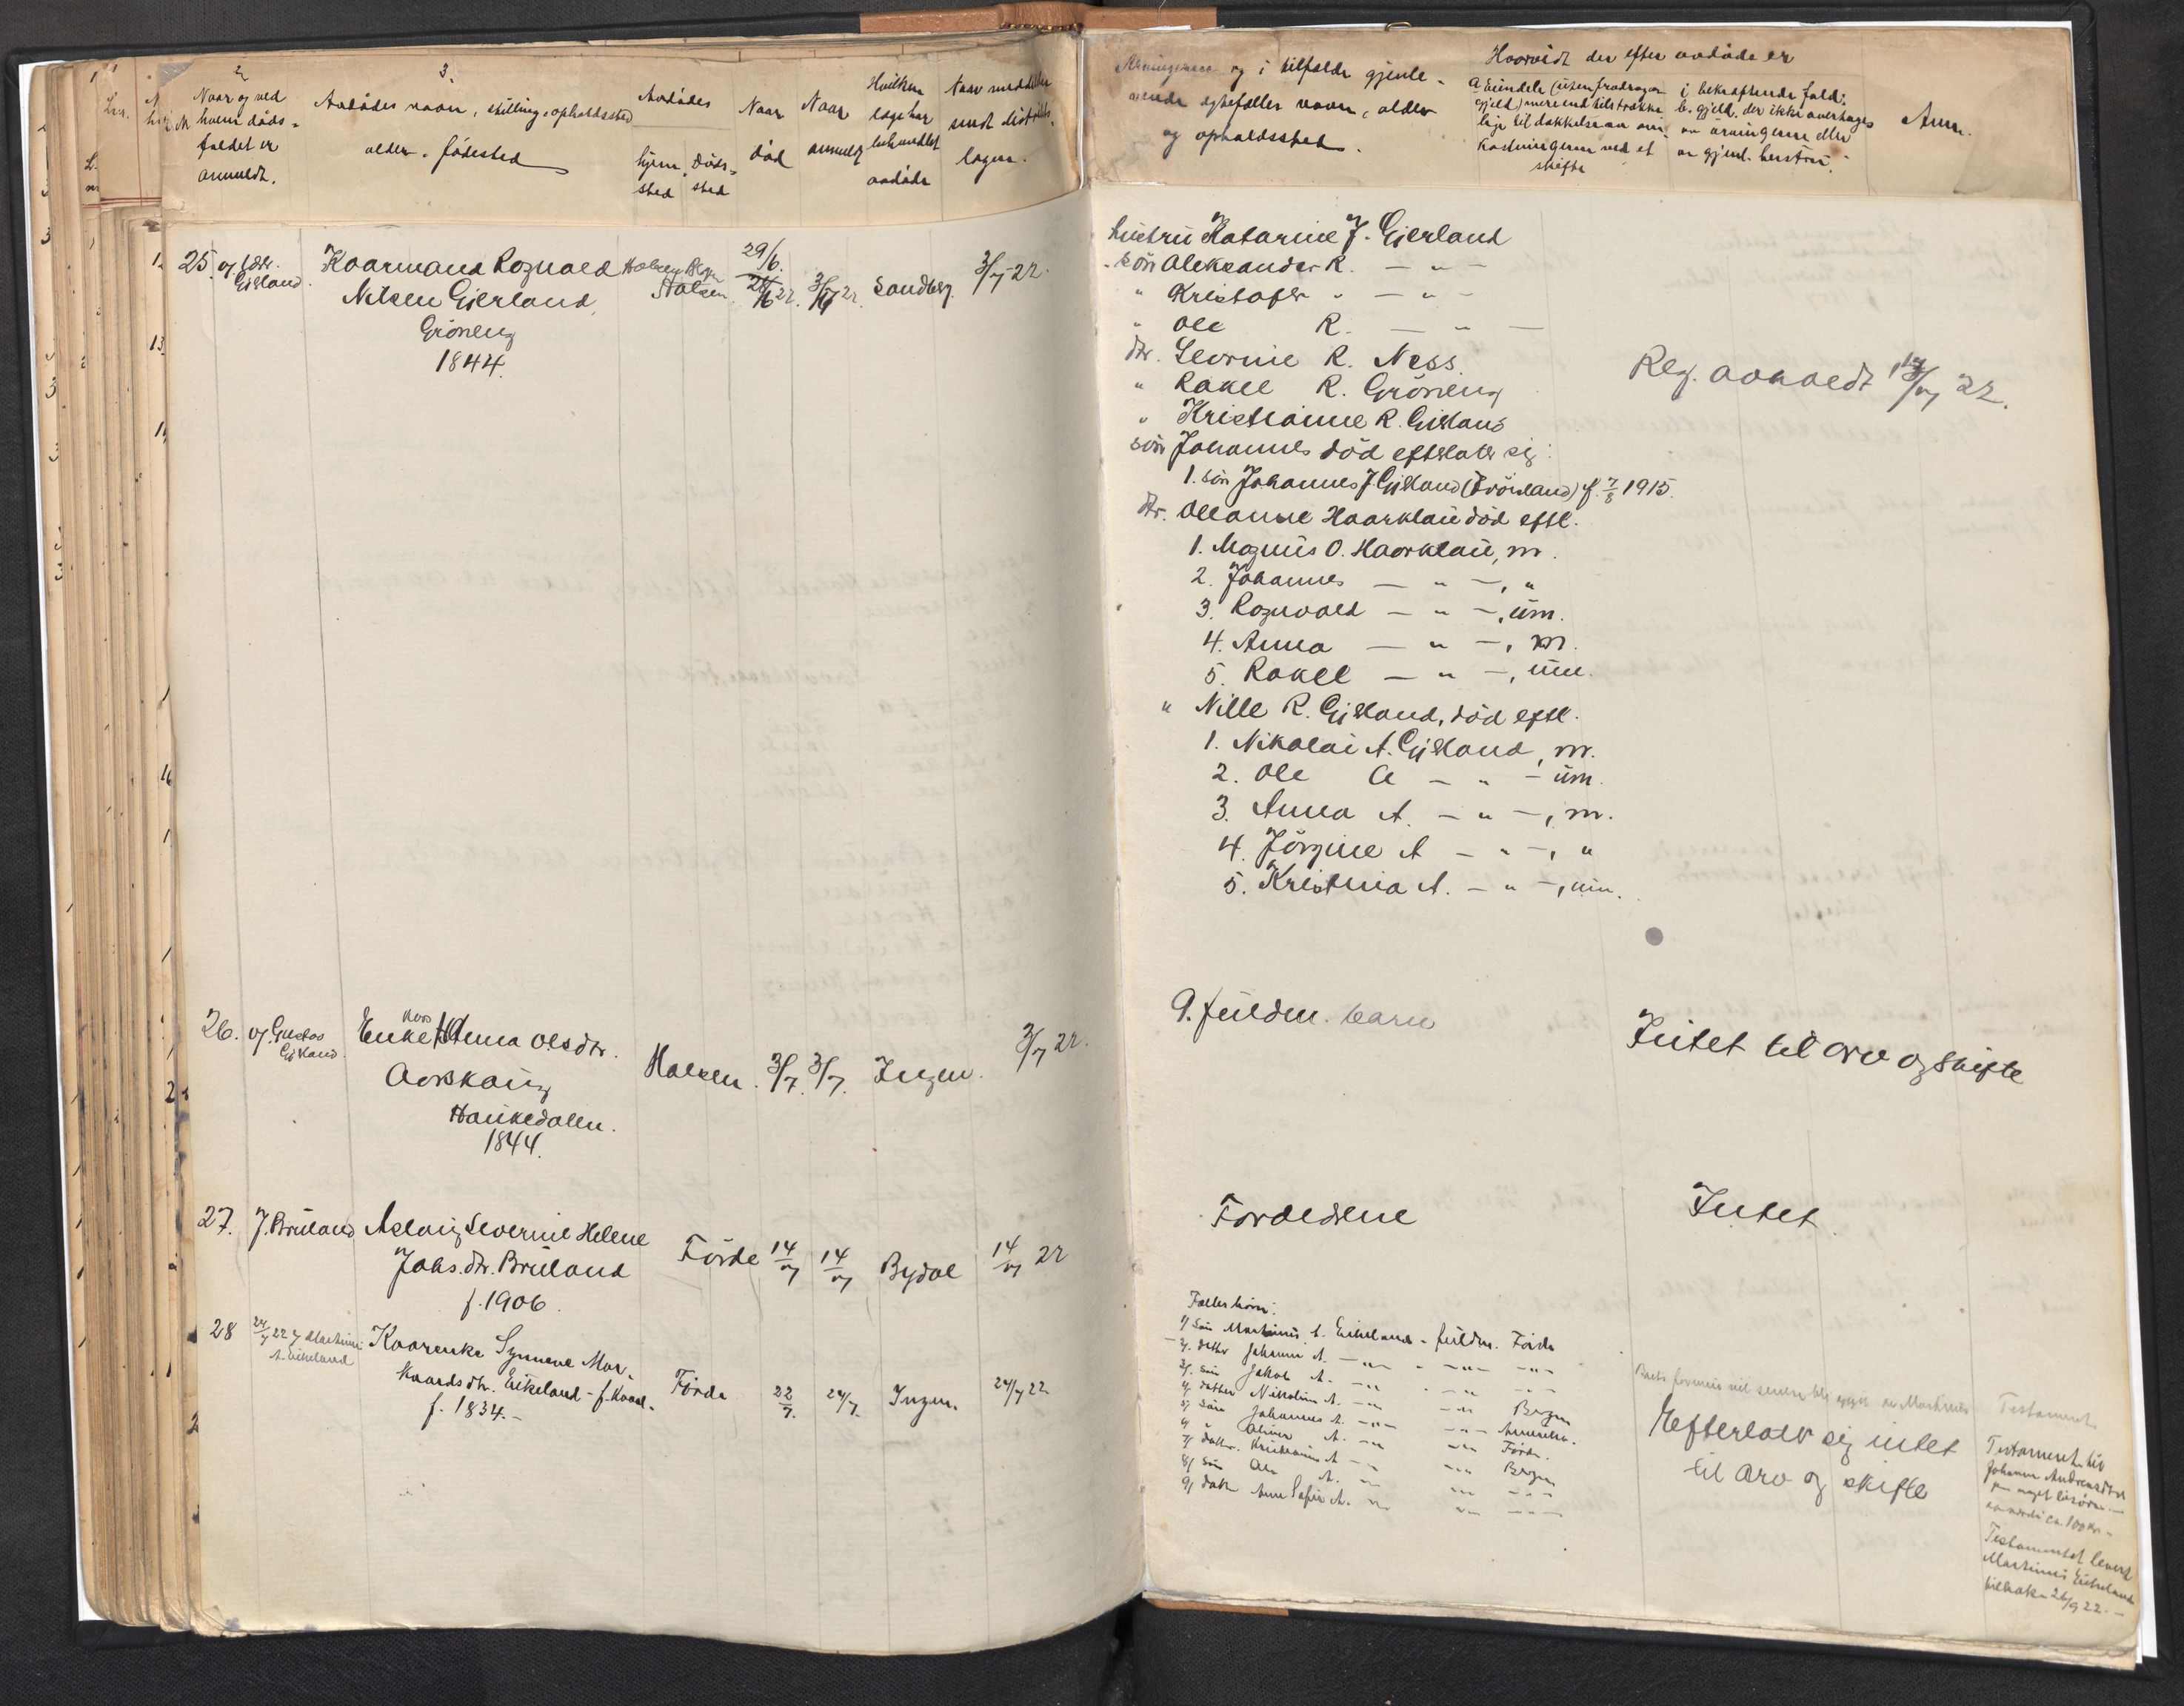 2.
Naar og ved
hvem døds-
faldet er
anmeldt.
3.
Avdødes navn, stilling, opholdssted
alder, fødested
Avdødes
hjem, døds-
sted sted
Naar
død
Naar
anmeldt
Hvilken
læge har
behandlet
avdøde
Naar meddelelse
sendt distrikts-
lægen.
og i tilfælde gjenle-
vende egtefælles navn, alder
og opholdssted.
Hvorvidt der efter avdøde er
a. eiendele (uten fradrag av
gjeld) mere end tilstrække-
lige til dækkelse av om-
kostningerne ved et
skifte
i bekræftende fald:
b. gjeld, der ikke overtages
av arvingerne eller
av gjenl. hustru.
Anm.
25. og lDr. Gjerland.
Kaarmand Rognald
Nilsen Gjerland,
Grøneng
1844.
Halsen
29/6.
28/6 22. 3/7 22. Sandberg. 3/7 22.
hustru Katarine J. Gjerland
søn Aleksander R. — " —
" Kristofer " — " —
" Ole R. — " —
Dtr. Severine R. Ness.
" Rakel R. Grøneng
" Kristianne R. Gjerland
søn Johannes død efterlater sig:
1. søn Johannes J. Gjerland f. 7/8 1915.
Dtr. Oleanne Haarklau død eftl.
1. Magnus O. Haarklau, m.
2. Johannes — " —, "
3. Rognvald — " —, um.
4. Anna — " —, m.
5. Rakel — " —, um.
" Nille R. Gjerland, død eftl.
1. Nikolai A. Gjerland, m.
2. Ole A — " — um.
3. Anna A. — " —, m.
4. Jørgine A — " —, "
5. Kristina A. — " —, um.
Reg. avholdt 13/7 22.
26. og Gustav Gjerland.
Enke Anna Olsdtr.
Haukedalen.
1844.
Halsen. 3/7. 3/7. Ingen. 3/7 22.
9. fuldm. barn
Intet til arv og skifte
27. J. Bruland
Aslaug Severine Helene
Johs. dtr. Bruland
f. 1906.
Førde 14/7 14/7 Bydal 14/7 22
Forældrene
Intet.
28 24/7 22 Martinus
A. Eikeland
Kaarenke Synneve Mar-
kvardsdtr. Eikeland - f. Kvaal.
f. 1834.-
Førde 22/7. 24/7. Ingen. 24/7 22
Fællesbørn:
1/ Søn Martinus A. Eikeland - fuldm. Førde
2/ datter Johanne A. — " — " — " — " —
3/ søn Jakob A. — " — " — " — " —
4/ datter Nikoline A. — " — " — Bergen
5/ søn Johannes A. — " — " — Amerika.
6/ " Oliver A. — " — " — Førde.
7/ datter. Kristianne A — " — " — Bergen
8/ søn Ole A. — " — " — " —
9/ dattr Anne Sofie A. — " — " — " —
Efterlater sig intet
til arv og skifte
Testament
Testament til
Johanne Andreasdtr
noget løsøre
verdi ca. 100 kr.-
Testamentet levert
Martinus Eikeland
tilbake 26/9 22.-